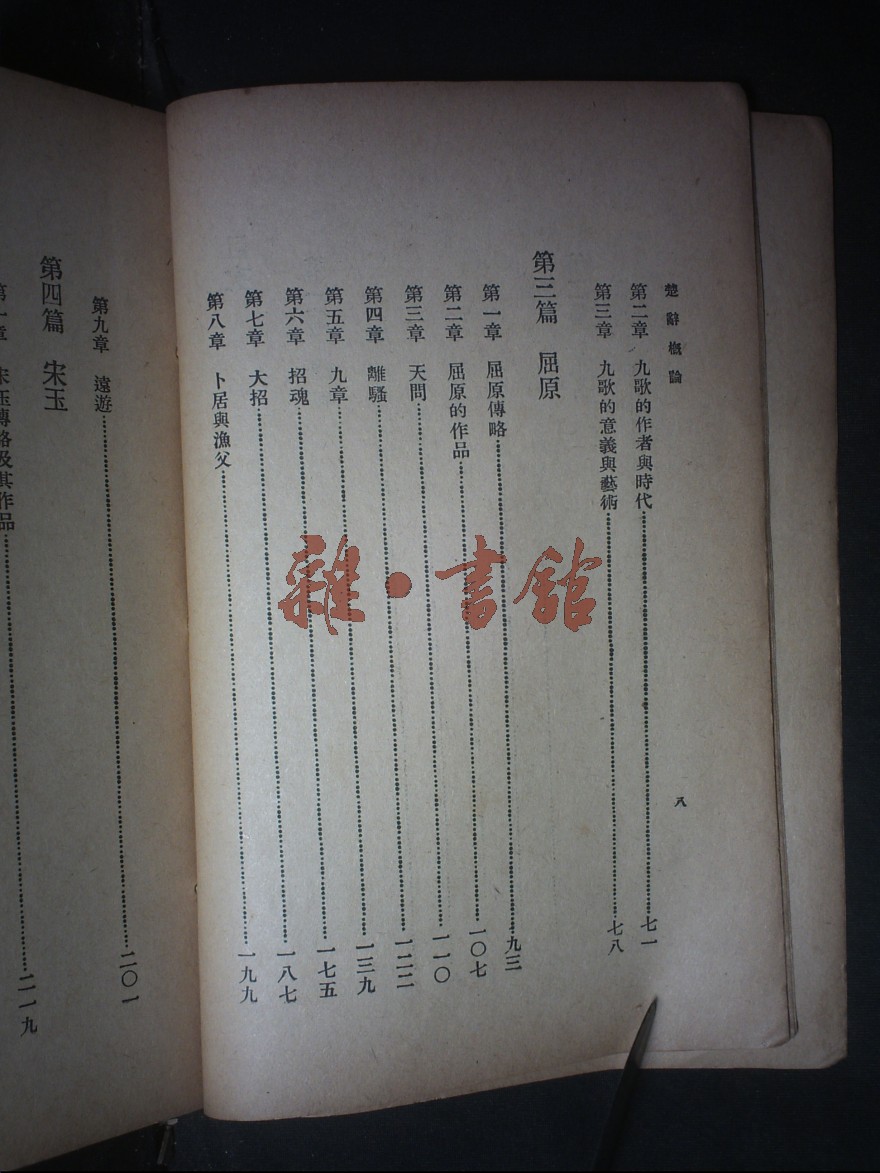 楚辭概論
八
第二章 九歌的作者與時代……七一
第三章 九歌的意義與藝術……七八
第三篇 屈原
第一章 屈原傳略……九三
第二章 屈原的作品……一〇七
第三章 天問……一一〇
第四章 離騷……一二二
第五章 九章……一三九
第六章 招魂……一七五
第七章 大招……一八七
第八章 卜居與漁父……一九九
第九章 遠遊……二〇一
第四篇 宋玉
第一章 宋玉傳略及其作品……二一九
雜·書館